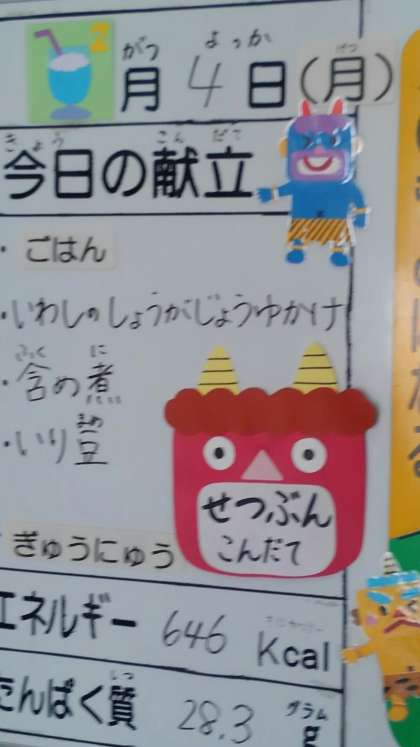 2
がつ よっか げつ
月 4日(月)
きょう こんだて
今日の献立
・ごはん
・いわしのしょうがじょうゆかけ
ふくに
・含め煮
まめ
・いり豆
せつぶん
こんだて
ぎゅうにゅう
エネルギー 646 Kcal
しつ グラム
たんぱく質 28.3 g